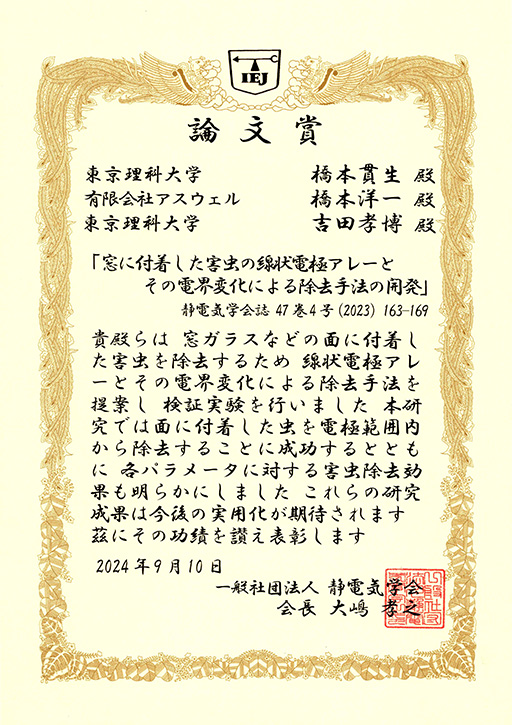 IEJ
論文賞
東京理科大学 橋本貫生 殿
有限会社アスウェル 橋本洋一 殿
東京理科大学 吉田孝博 殿
「窓に付着した害虫の線状電極アレーと
その電界変化による除去手法の開発」
静電気学会誌 47巻4号(2023) 163-169
貴殿らは 窓ガラスなどの面に付着し
た害虫を除去するため 線状電極アレ
ーとその電界変化による除去手法を
提案し 検証実験を行いました 本研
究では面に付着した虫を電極範囲内
から除去することに成功するととも
に 各パラメータに対する害虫除去効
果も明らかにしました これらの研究
成果は今後の実用化が期待されます
茲にその功績を讃え表彰します
2024年9月10日
一般社団法人 静電気学会
会長 大嶋 孝之